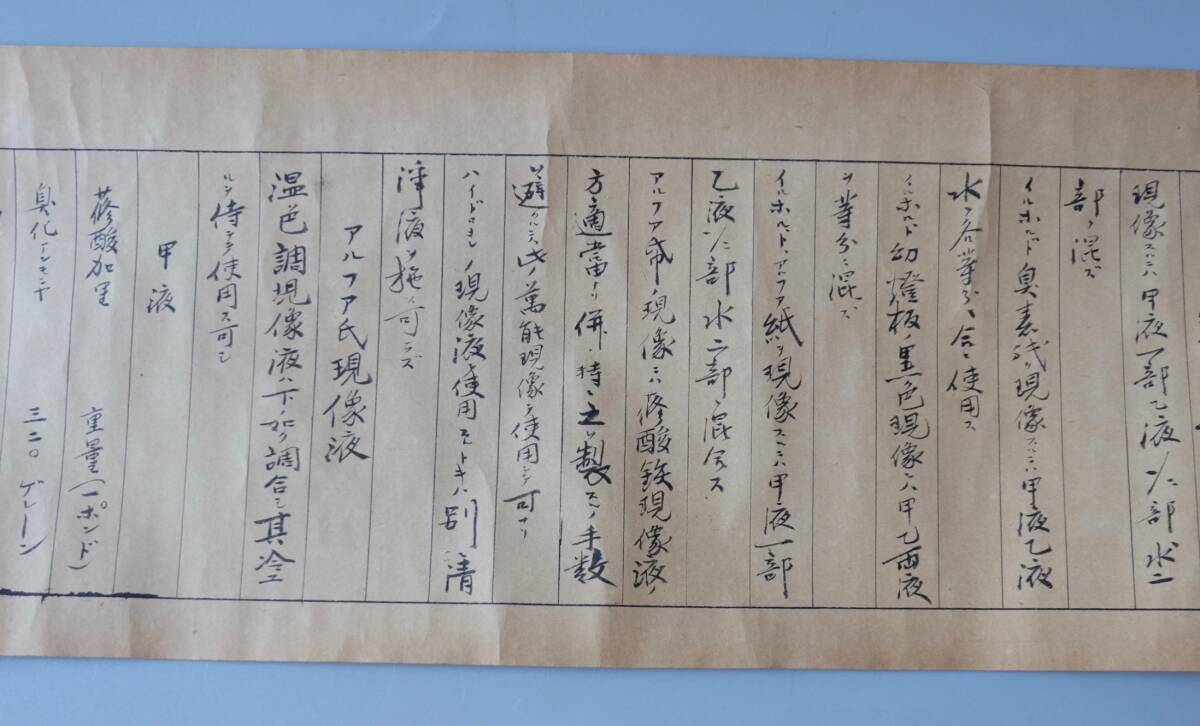 現像スルニハ甲液一部乙液1/2部水二
部ヲ混ズ
イルホルド臭素紙ヲ現像スルニハ甲液乙液
水ヲ各等分ニ合シ使用ス
イルホルド幻燈板ノ黒色現像ニハ甲乙両液
ヲ等分ニ混ズ
イルホルド、アルファ紙ヲ現像スルニハ甲液一部
乙液1/2部水二部ヲ混合ス
アルファ紙ノ現像ニハ蓚酸鉄現像液ノ
方適當ナリ併シ特ニ之ヲ製スルノ手数
ヲ避クルニハ此ノ萬能現像ヲ使用シテ可ナリ
ハイドロキノン現像液ヲ使用スルトキハ別ニ清
浄液ヲ施ス可ラズ
アルファ氏現像液
温色調現像液ハ下ノ如ク調合シ其冷エ
ルヲ待テ使用ス可シ
甲液
蓚酸加里 重量(一ポンド)
臭化アンモニヤ 三二〇グレーン